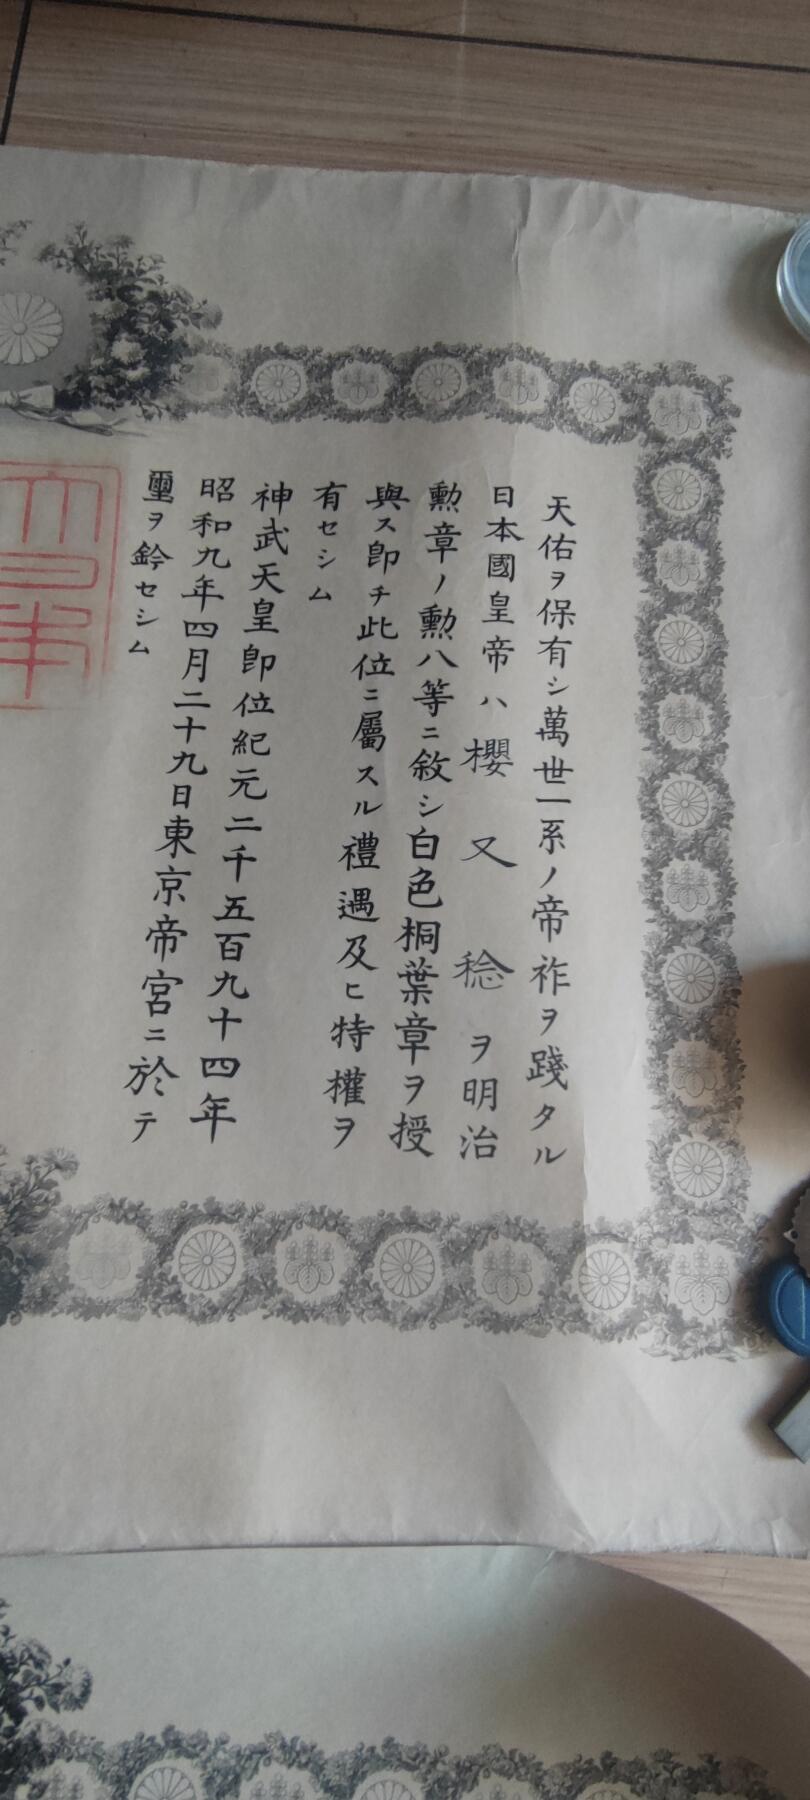 天佑ヲ保有シ萬世一系ノ帝祚ヲ踐タル
日本國皇帝ハ櫻又稔ヲ明治
勳章ノ勳八等ニ敘シ白色桐葉章ヲ授
與ス卽チ此位ニ屬スル禮遇及ヒ特權ヲ
有セシム
神武天皇卽位紀元二千五百九十四年
昭和九年四月二十九日東京帝宮ニ於テ
璽ヲ鈐セシム
大日本